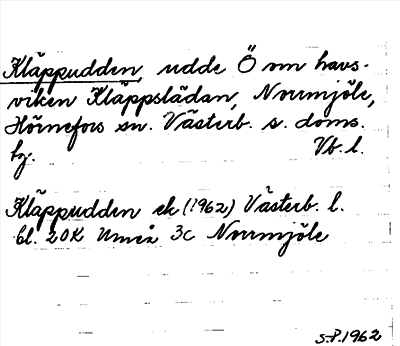 Kläppudden, udde Ö om havs-
viken Kläppslädan, Norrmjöle,
Hörnefors sn. Västerb. s. doms.
hg. Vb. l.
Kläppudden ek (1962) Västerb. l.
bl. 20K Umeå 3c Norrmjöle
S.P. 1962